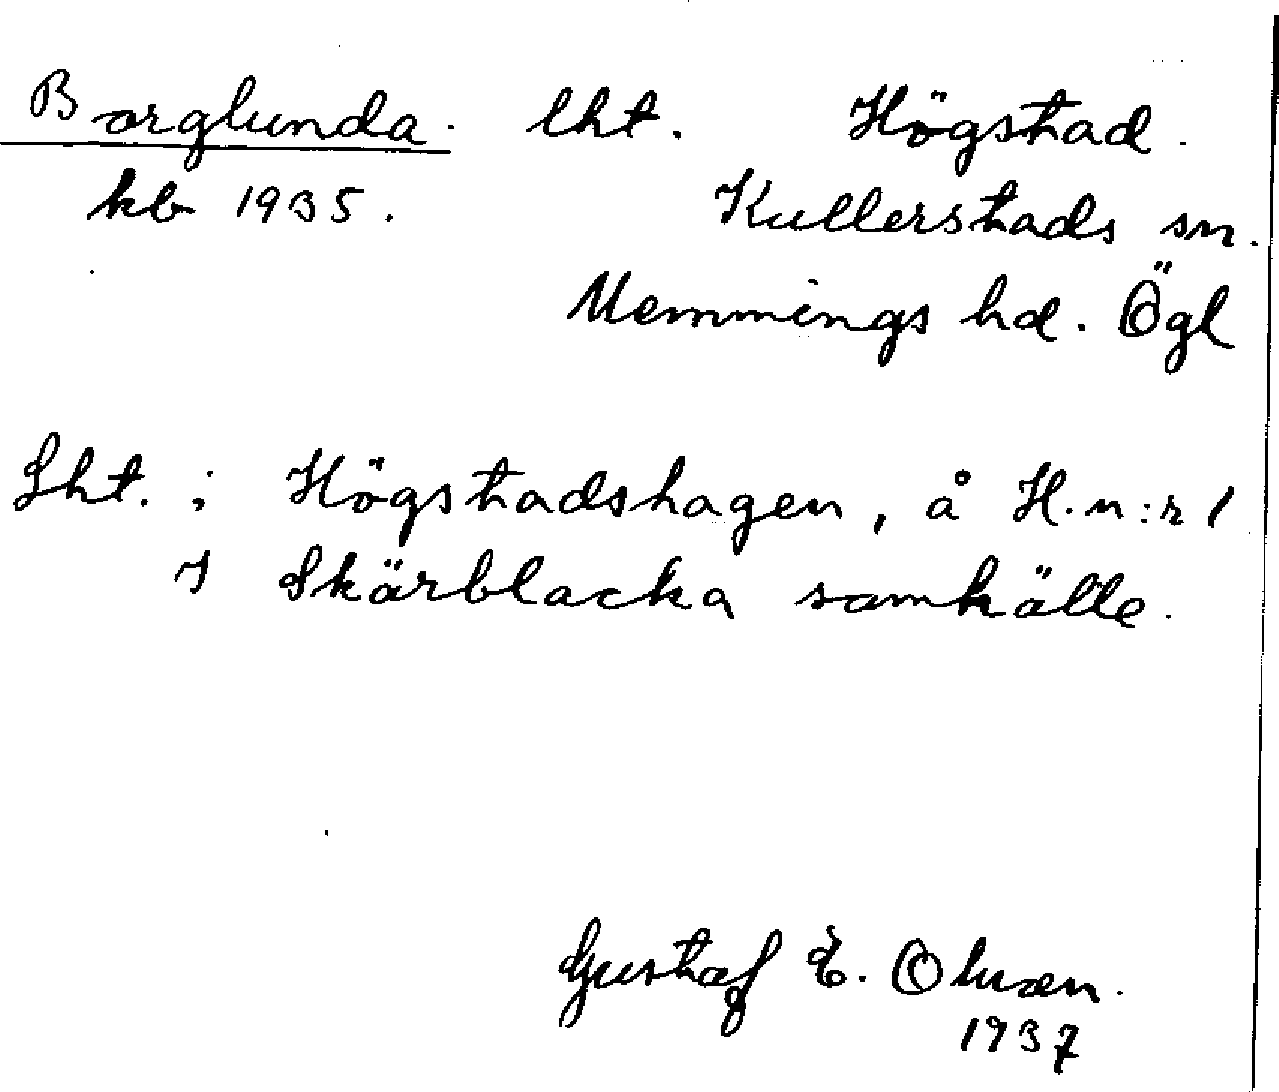 Borglunda. lht. Högstad.
kb 1935. Kullerstads sn.
Memmings hd. Ögl
Lht. i Högstadshagen, å H. n:r 1
I Skärblacka samhälle.
Gustaf E. Olsson.
1937